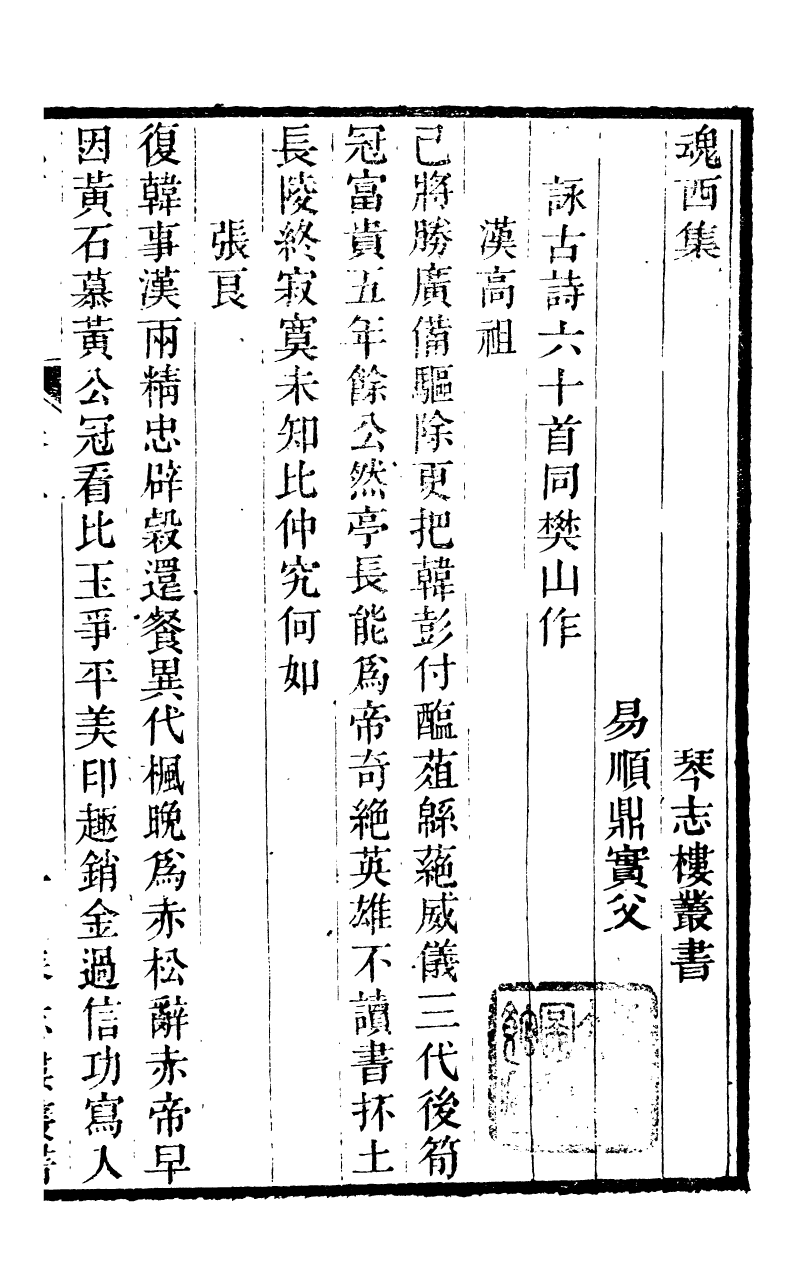 魂西集　琴志樓叢書
易順鼎實父
詠古詩六十首同樊山作
漢高祖
已將勝廣備驅除更把韓彭付醢菹緜蕝威儀三代後筍
冠富貴五年餘公然亭長能爲帝奇絶英雄不讀書抔土
長陵終寂寞未知比仲究何如
張良
復韓事漢兩精忠辟穀還餐異代楓晚爲赤松辭赤帝早
因黃石慕黃公冠看比玉爭平美印趣銷金過信功寫人